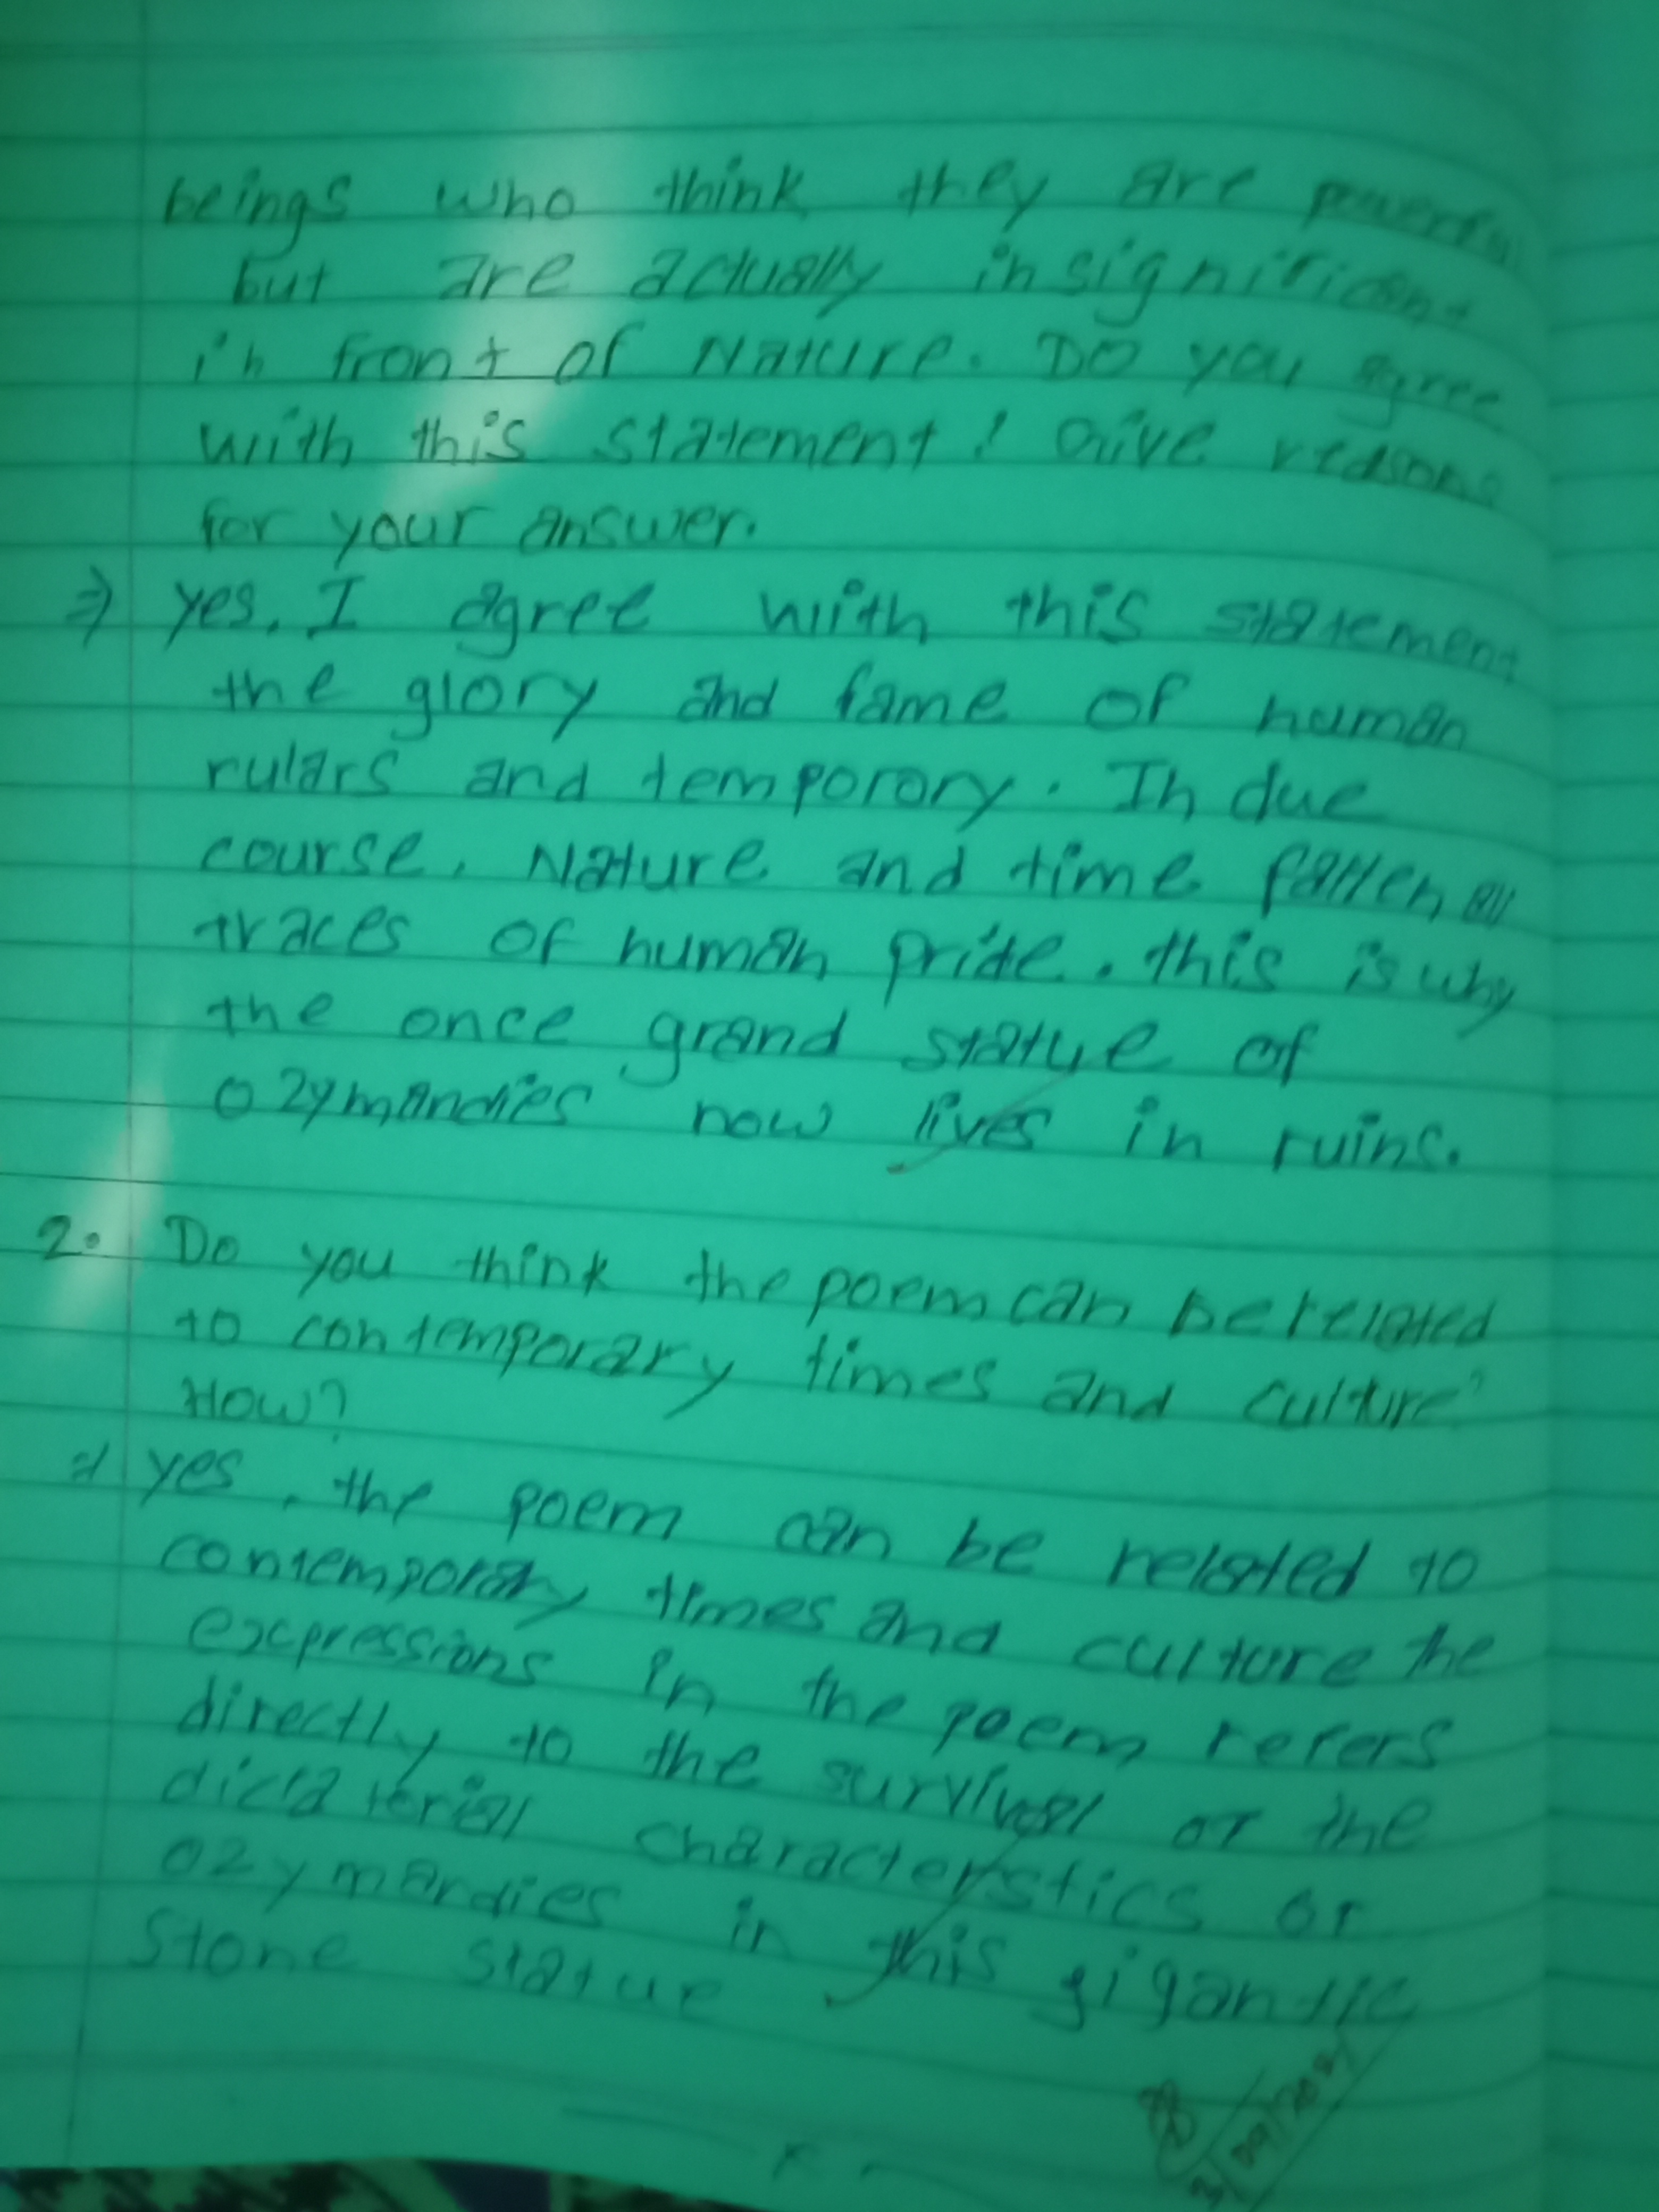 beings who think they are powerful
but are actually insignificant
in front of Nature. Do you agree
with this statement? Give reasons
for your answer.
⇒ yes, I agree with this statement
the glory and fame of human
rulars and temporory. In due
course, Nature and time fatten all
traces of human pride. this is why
the once grand statue of
ozymandies now lives in ruins.
2. Do you think the poem can be related
to contemporary times and culture?
How?
⇒ yes, the poem can be related to
contemporary times and culture the
expressions in the poem refers
directly to the survival of the
dictaterial characterstics of
ozymandies in this gigantic
stone statue